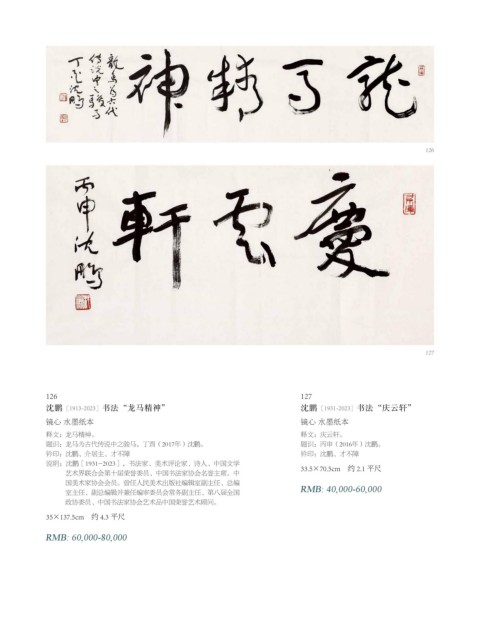 龍馬精神
龍馬为古代
传说中之駿马
丁酉沈鵬
126
慶雲軒
丙申沈鵬
127
126
沈鹏［1913-2023］书法“龙马精神”
镜心 水墨纸本
释文：龙马精神。
题识：龙马为古代传说中之骏马。丁酉（2017年）沈鹏。
钤印：沈鹏、介居主、才不障
说明：沈鹏［1931-2023］，书法家、美术评论家、诗人、中国文学
艺术界联合会第十届荣誉委员、中国书法家协会名誉主席、中
国美术家协会会员、曾任人民美术出版社编辑室副主任、总编
室主任、副总编辑并兼任编审委员会常务副主任、第八届全国
政协委员、中国书法家协会艺术品中国荣誉艺术顾问。
35×137.5cm 约 4.3 平尺
RMB: 60,000-80,000
127
沈鹏［1931-2023］书法“庆云轩”
镜心 水墨纸本
释文：庆云轩。
题识：丙申（2016年）沈鹏。
钤印：沈鹏、才不障
33.5×70.5cm 约 2.1 平尺
RMB: 40,000-60,000